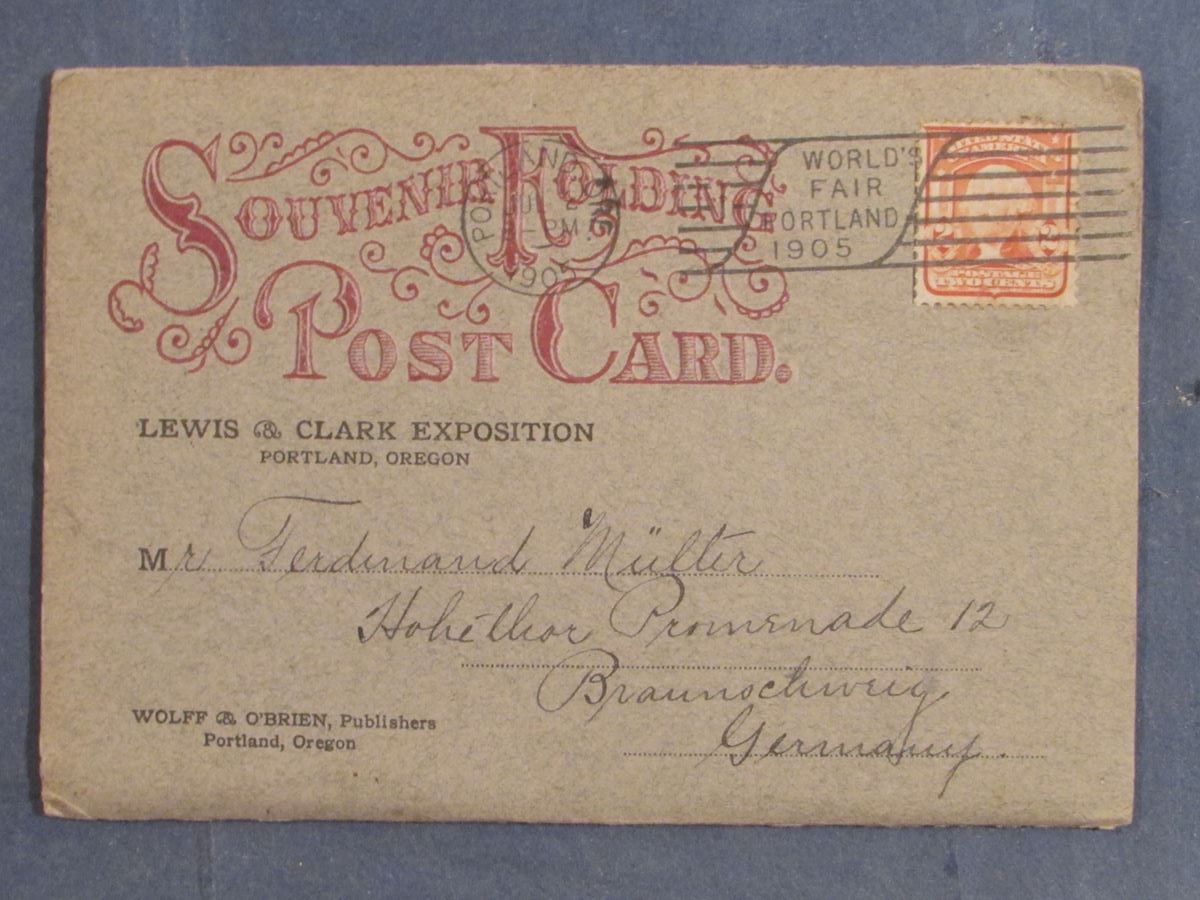 SOUVENIR FOLDING
POST CARD.
PORTLAND
PM
1905
WORLD'S
FAIR
PORTLAND
1905
2 2
POSTAGE
TWO CENTS
LEWIS & CLARK EXPOSITION
PORTLAND, OREGON
Mr Ferdinand Mülter
Hohethor Promenade 12
Braunschweig
Germany.
WOLFF & O'BRIEN, Publishers
Portland, Oregon